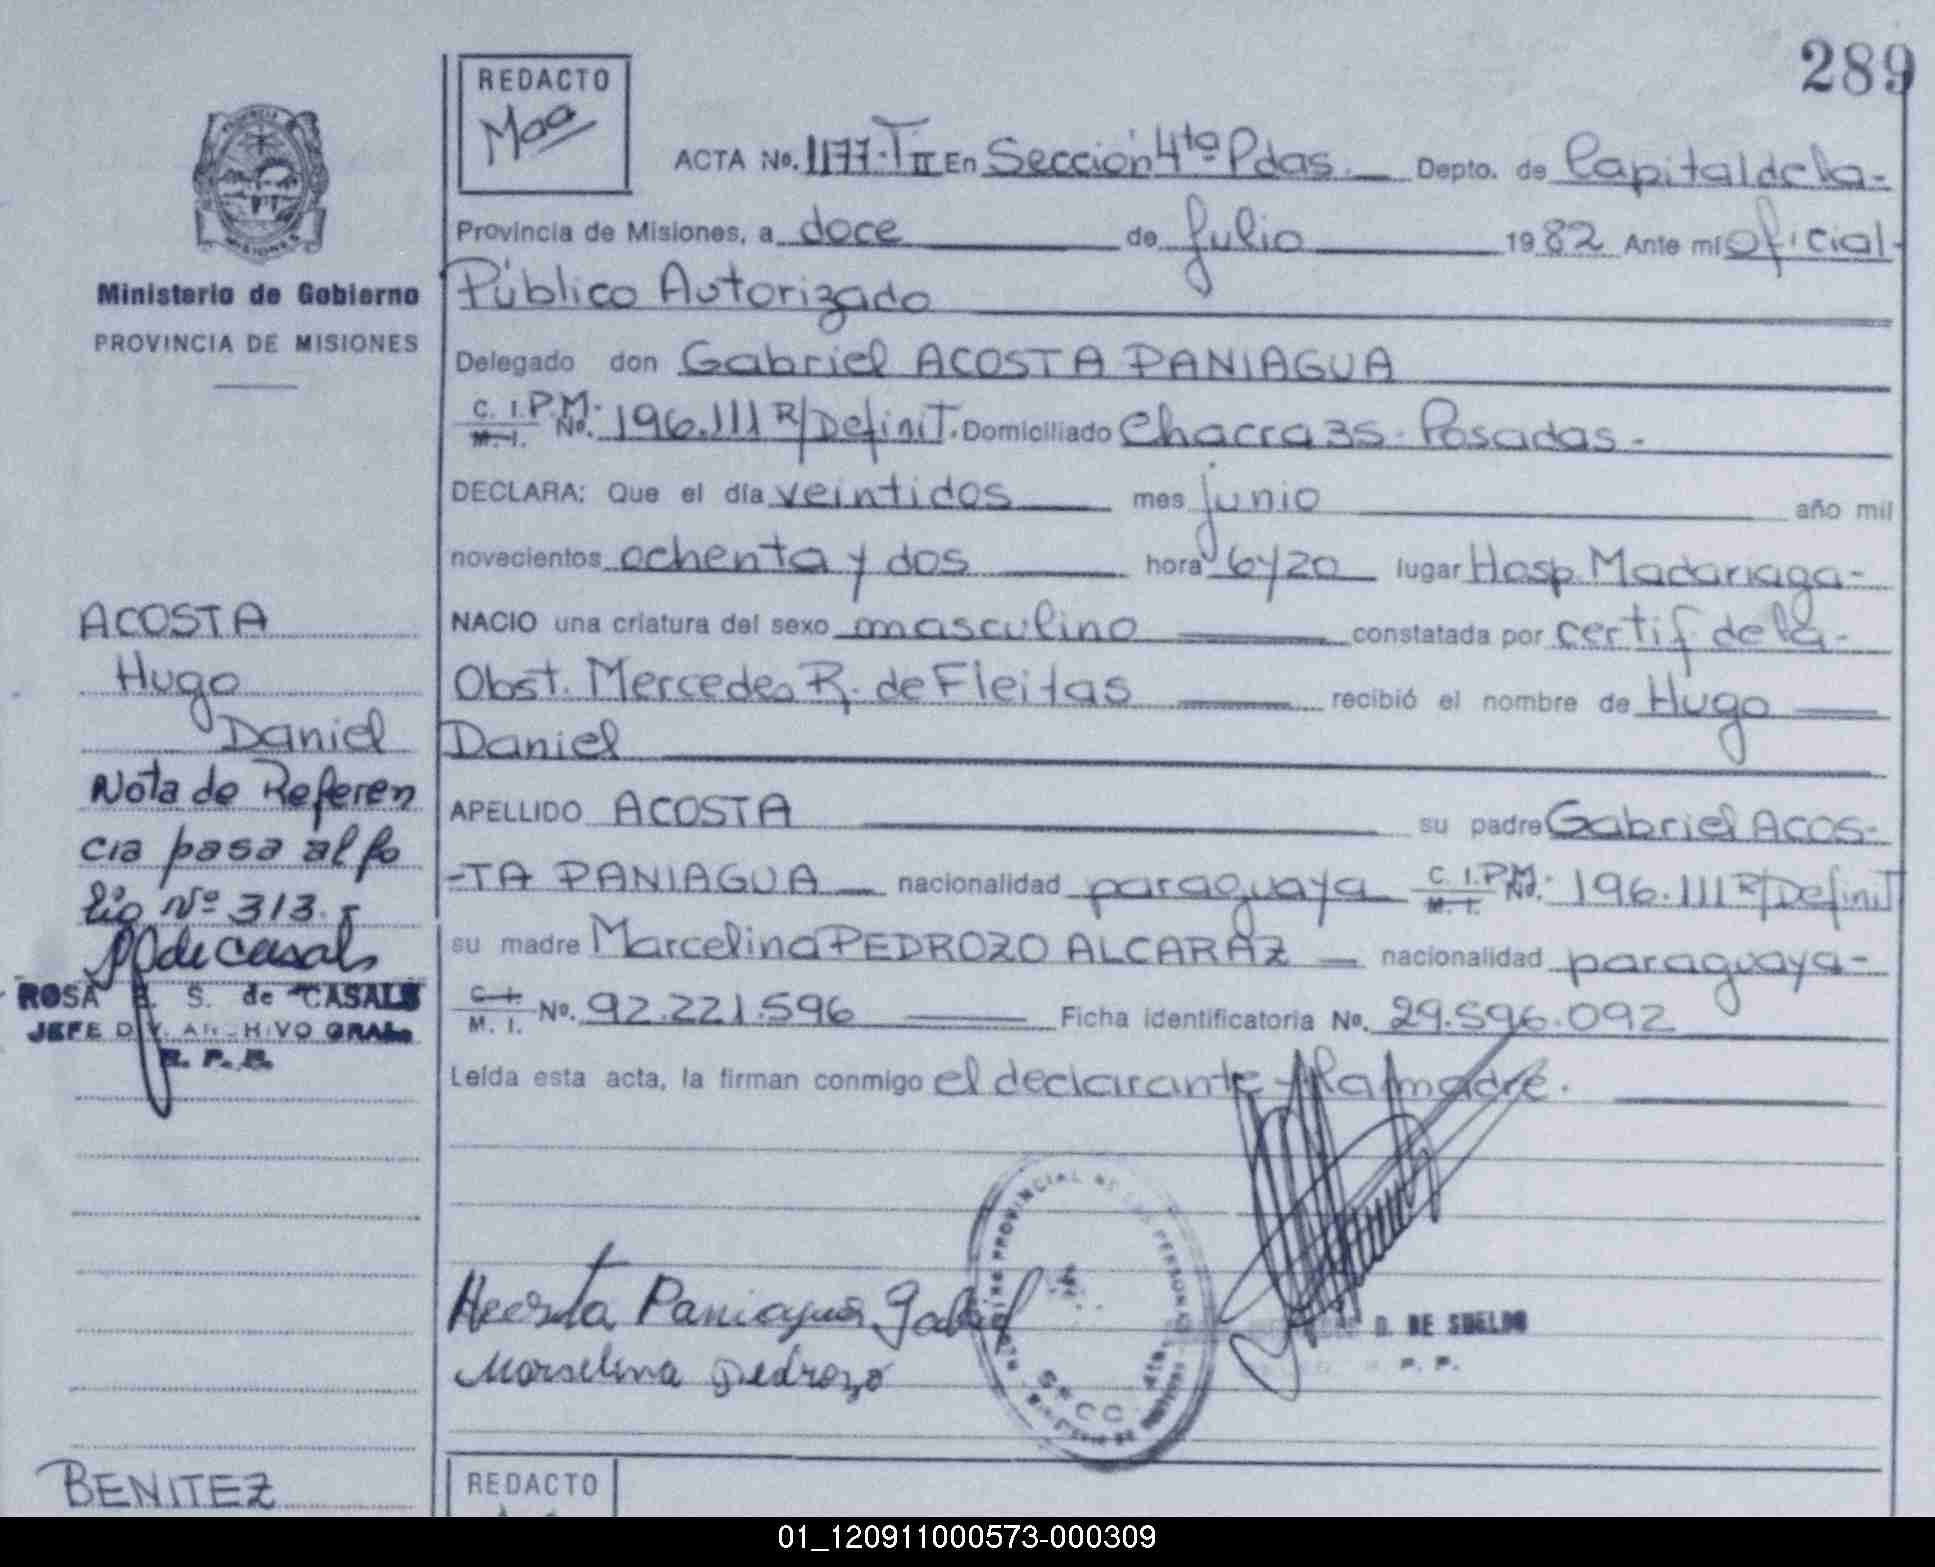 289
REDACTO
Maa
ACTA No. 1177·T II En Sección 4ta Pdas. Depto. de Capital de la-
Provincia de Misiones, a doce de Julio 1982 Ante mí oficial-
Público Autorizado
Delegado don Gabriel ACOSTA PANIAGUA
C. I. P.M. M. I. No. 196.111 R/Definit. Domiciliado Chacra 35 - Posadas-
DECLARA: Que el día veintidos mes junio año mil
novecientos ochenta y dos hora 6y20 lugar Hosp. Madariaga-
NACIO una criatura del sexo masculino constatada por certif. de la-
Obst. Mercedes R. de Fleitas recibió el nombre de Hugo
Daniel
APELLIDO ACOSTA su padre Gabriel ACOS-
-TA PANIAGUA nacionalidad paraguaya C. I. P.M. M. I. No. 196.111 R/Definit
su madre Marcelina PEDROZO ALCARAZ nacionalidad paraguaya-
C. I. M. I. No. 92.221.596 Ficha identificatoria No. 29.596.092
Leída esta acta, la firman conmigo el declarante y la madre.
Acosta Paniagua Gabriel
Marselina pedrozo
D. DE SUELDO
PROVINCIA
MISIONES
Ministerio de Gobierno
PROVINCIA DE MISIONES
ACOSTA
Hugo
Daniel
Nota de Referen
cia pasa al fo
lio Nº 313.-
de Casals
ROSA S. de CASALS
JEFE DIV. ARCHIVO GRAL.
R. P. P.
BENITEZ
REDACTO
01_120911000573-000309